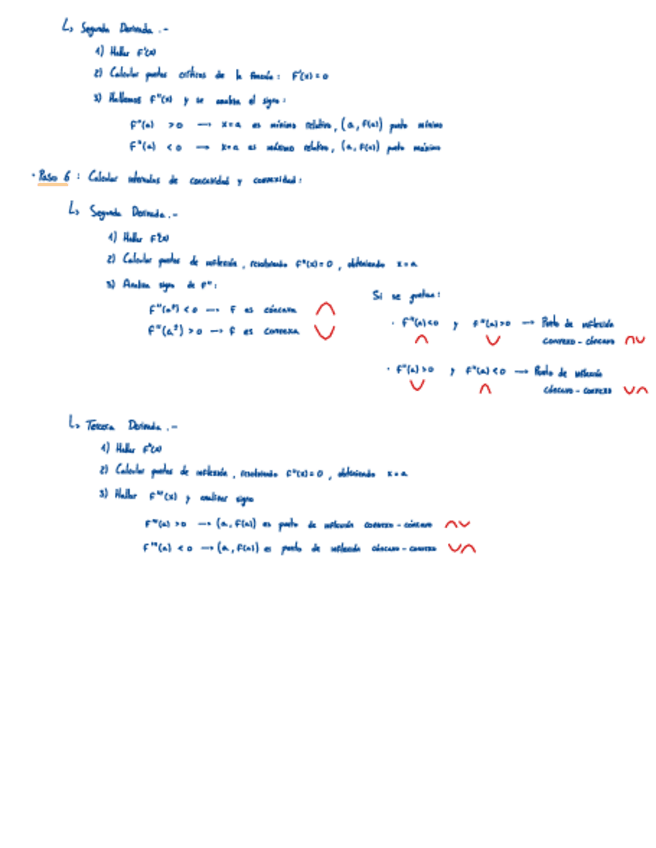 ↳ Segunda Derivada.-
1) Hallar F'(x)
2) Calcular puntos críticos de la función: F'(x)=0
3) Hallamos F''(x) y se analiza el signo:
F''(a) >0 → x=a es mínimo relativo, (a, F(a)) punto mínimo
F''(a) <0 → x=a es máximo relativo, (a, F(a)) punto máximo
· Paso 6: Calcular intervalos de concavidad y convexidad:
↳ Segunda Derivada.-
1) Hallar F''(x)
2) Calcular puntos de inflexión, resolviendo F''(x)=0, obteniendo x=a
3) Analiza signo de F'':
F''(a) <0 → F es cóncava ∩
F''(a) >0 → F es convexa ∪
Si se juntan:
· F''(a)<0 y F''(a)>0 → Punto de inflexión
∩ ∪ convexo-cóncavo ∩∪
· F''(a)>0 y F''(a)<0 → Punto de inflexión
∪ ∩ cóncavo-convexo ∪∩
↳ Tercera Derivada.-
1) Hallar F''(x)
2) Calcular puntos de inflexión, resolviendo F''(x)=0, obteniendo x=a
3) Hallar F'''(x) y analizar signo
F'''(a) >0 → (a, F(a)) es punto de inflexión convexo-cóncavo ∩∪
F'''(a) <0 → (a, F(a)) es punto de inflexión cóncavo-convexo ∪∩